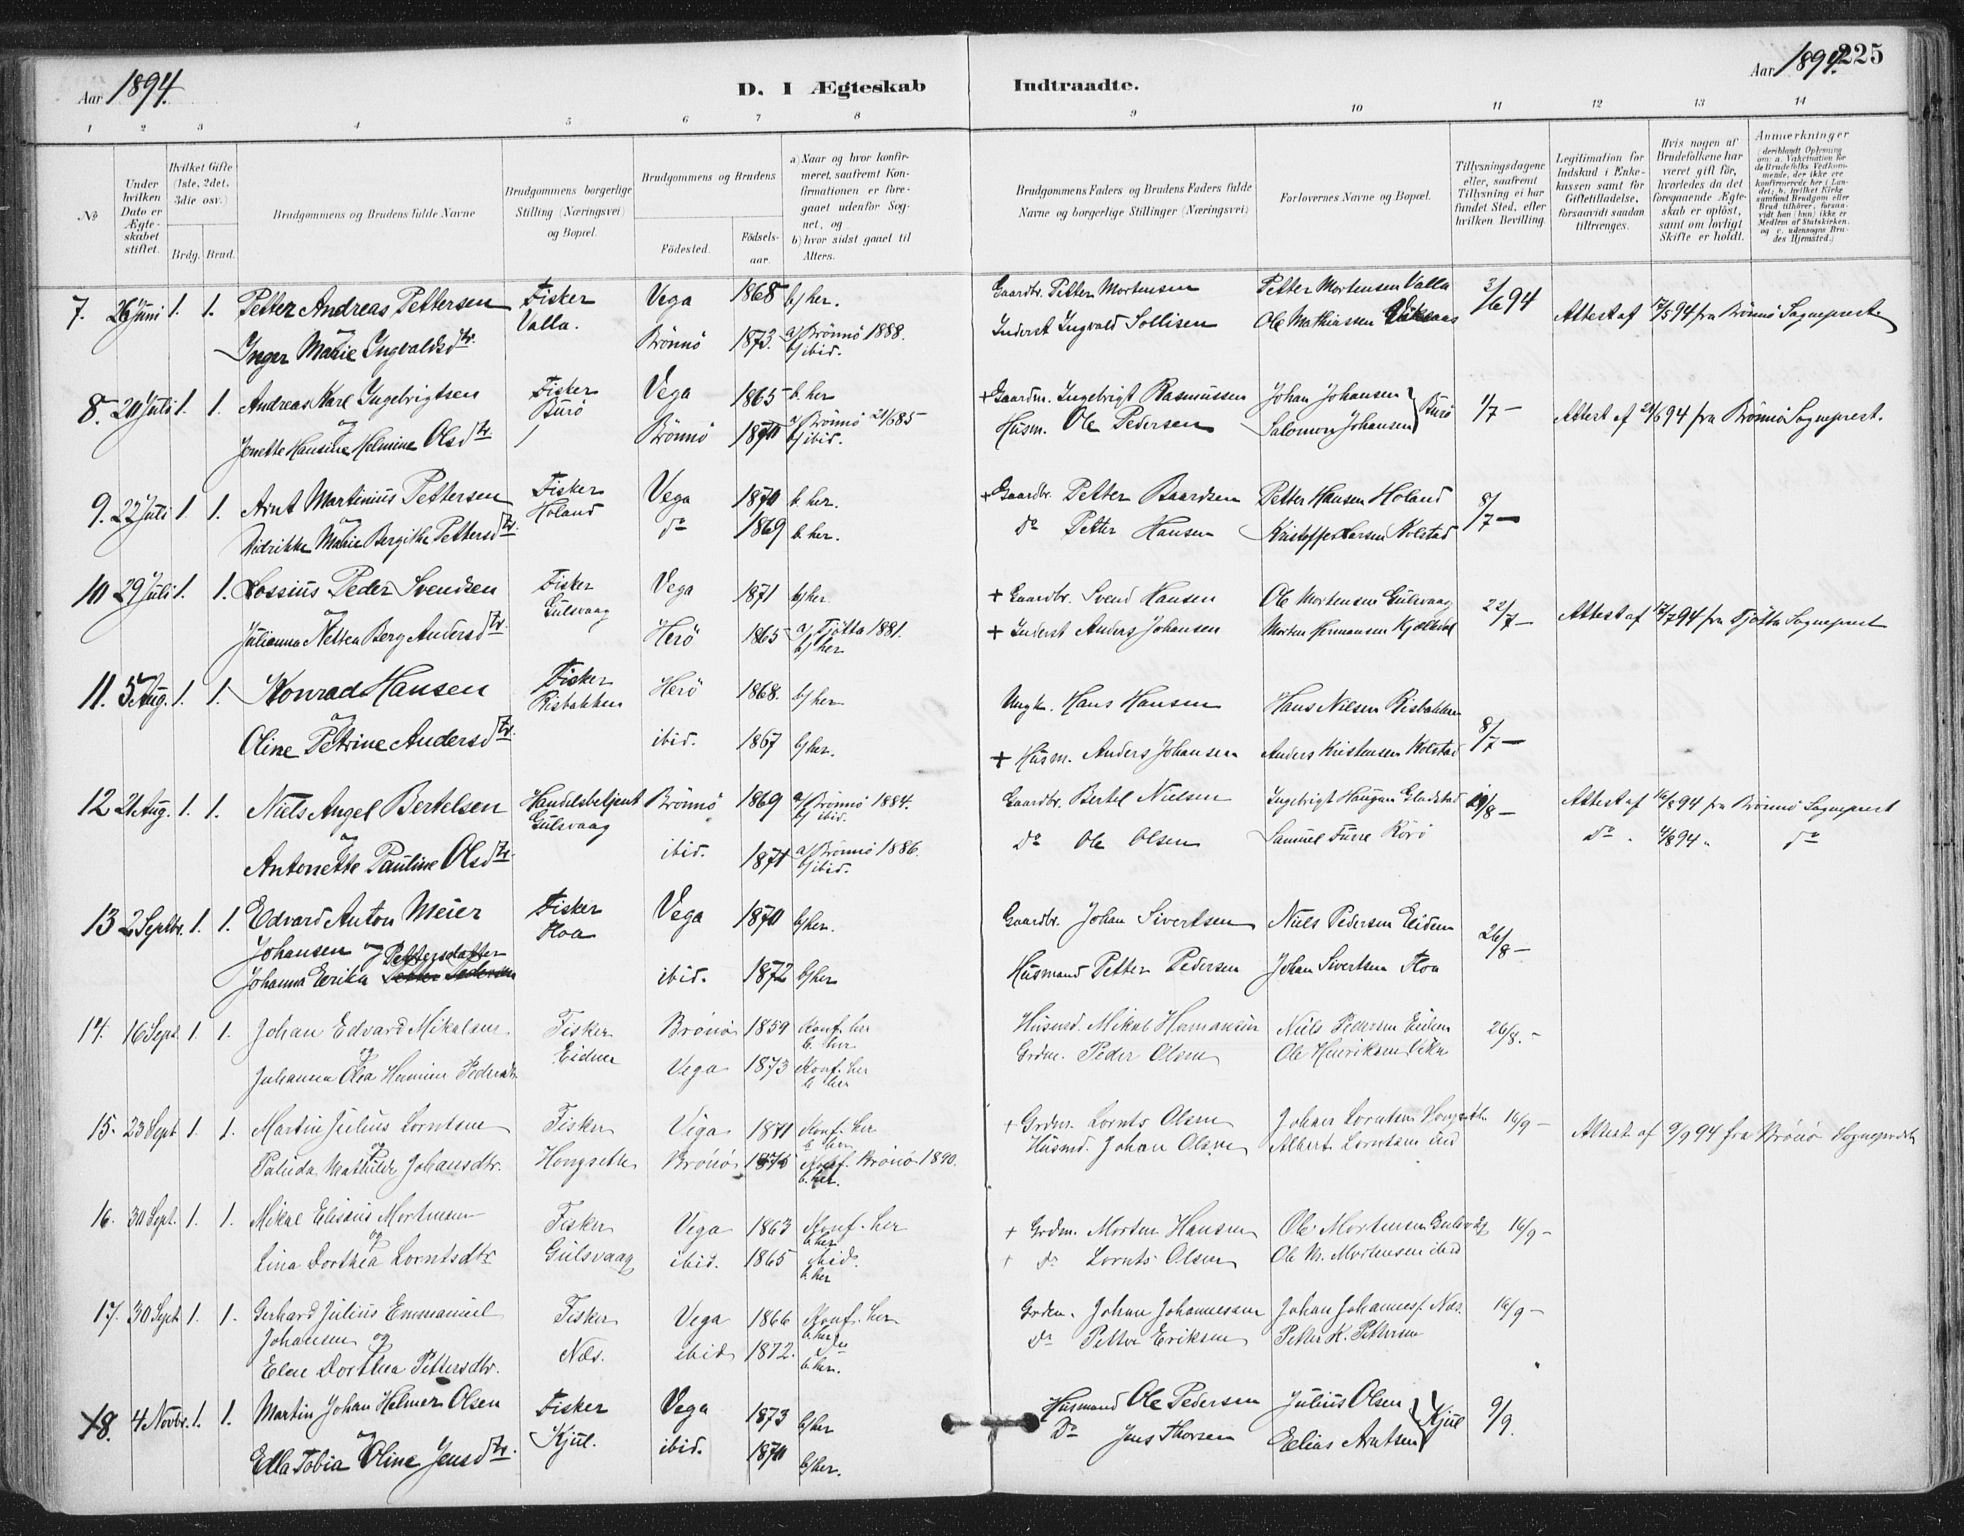 Aar 1894.
D. I Ægteskab Indtraadte.
Aar 1894. 225
1 2 3 4 5 6 7 8 9 10 11 12 13 14
№
Under hvilken Dato er Ægteskabet stiftet.
Hvilket Gifte (1ste, 2det, 3die osv.)
Brdg. Brud.
Brudgommens og Brudens fulde Navne
Brudgommens borgerlige Stilling (Næringsvei) og Bopæl.
Brudgommens og Brudens
Fødested. Fødselsaar.
a) Naar og hvor konfirmeret, saafremt Konfirmationen er foregaaet udenfor Sognet, og
b) hvor sidst gaaet til Alters.
Brudgommens Faders og Brudens Faders fulde Navne og borgerlige Stillinger (Næringsvei)
Forlovernes Navne og Bopæl.
Tillysningsdagene eller, saafremt Tillysning ei har fundet Sted, efter hvilken Bevilling.
Legitimation for Indskud i Enkekassen samt for Giftetilladelse, forsaavidt saadan tiltrænges.
Hvis nogen af Brudefolkene har været gift før, hvorledes da det foregaaende Ægteskab er opløst, samt om lovligt Skifte er holdt.
Anmerkninger (deriblandt Oplysning om: a. Vaksination for de Brudefolks Vedkommende, der ikke ere konfirmerede her i Landet; b. hvilket Kirkesamfund Brudgom eller Brud tilhører, forsaavidt han (hun) ikke er Medlem af Statskirken, og c. udensogns Brudes Hjemsted.)
7. 26 Juni 1. 1. Petter Andreas Pettersen Fisker Vega 1868 b/ her. Gaardbr. Petter Mortensen Petter Mortensen Valla 3/6 94 Attest af 17/5 94 fra Brönnö Sogneprest.
og Valla.
Inger Marie Ingvaldsdtr. Brönnö 1873. a/ Brönnö 1888. b/ ibid. Inderst Ingvald Sollisen Ole Mathiassen
8. 20 Juli 1. 1. Andreas Karl Ingebrigtsen Fisker Vega 1865 b. her + Gaardm. Ingebrigt Rasmussen Johan Johansen Burö 1/7 – Attest af 21/6 94 fra Brönnö Sogneprest.
og Burö
Jonette Hansine Helmine Olsdtr. Brönnö 1870 a/ Brönnö 21/6 85 b/ ibid. Husm. Ole Pedersen Salomon Johansen
9. 22 Juli 1. 1. Arnt Martinius Pettersen Fisker Vega 1870 b. her. + Gaardbr. Petter Baardsen Petter Hansen Holand 8/7 –
og Holand
Didrikke Marie Bergithe Pettersdtr. do 1869 b. her. do Petter Hansen Kristoffer Larsen Kolstad
10 29 Juli 1. 1. Lossius Peder Svendsen Fisker Vega 1871 b/ her + Gaardbr. Svend Hansen Ole Mortensen Gulsvaag 22/7 – Attest af 17/7 94 fra Tjötta Sogneprest
og Gulsvaag
Julianna Netten Berg Andersdtr. Herö 1865 a/ Tjötta 1881. b/ her + Inderst Anders Johansen Morten Hermansen
11. 5 Aug. 1. 1. Konrad Hansen Fisker Herö 1868. b/ her Ungk. Hans Hansen Hans Nilsen Risbakken 8/7 –
og Risbakken
Oline Petrine Andersdtr. ibid. 1867 b/ her. + Husm. Anders Johansen Anders Kristensen Kolstad
12 21 Aug. 1. 1. Niels Angel Bertelsen Handelsbetjent Brönnö 1869 a/ Brönnö 1884. b/ ibid. Gaardbr. Bertel Nielsen Ingebrigt Haugan Gladstad 19/8 – Attest af 16/8 94 fra Brönnö Sogneprest
og Gulsvaag
Antonette Pauline Olsdtr. ibid. 1871 a/ Brönnö 1886. b/ ibid. do Ole Olsen Samuel Furre Rörö do 4/8 94 do
13 2 Septbr. 1. 1. Edvard Anton Meier Fisker Vega 1870 b/ her. Gaardbr. Johan Sivertsen Niels Pedersen Eidem 26/8 –
Johansen og Floa
Johanna Eerika Pettersdatter ibid. 1872 b/ her Husmand Petter Pedersen Johan Sivertsen Floa
14. 16 Sept. 1. 1. Johan Edvard Mikalsen Fisker Brönö 1859 Konf. her b. her Husmd. Mikal Hermansen Niels Pedersen Eidem 26/8. –
og Eidem
Johanna Olea Hermine Pedersdtr. Vega 1873 Konf. her b. her Grdm. Peder Olsen Ole Henriksen Vika
15. 23 Sept 1. 1. Martin Julius Lorntsen Fisker Vega 1871 Konf. her b. her + Grdm. Lornts Olsen Johan Lorntsen Hongseth 16/9 – Attest af 9/9 94 fra Brönö Sogneprest
og
Paluda Mathilde Johansdtr. Hongseth Brönö 1875 Konf. Brönö 1890. b. her. Husmd. Johan Olsen Albert Lorntsen ibid
16. 30 Sept. 1. 1. Mikal Elisæus Mortensen Fisker Vega 1863 Konf. her b. her + Grdm. Morten Hansen Ole Mortensen Gulsvåg 16/9 –
og
Lina Dorthea Lorntsdtr Gulsvaag ibid. 1865 ibid. b. her + do Lornts Olsen Ole M. Mortensen ibid
17. 30 Sept 1. 1. Gerhard Julius Emmanuel Fisker Vega 1866 Konf. her b. her Grdm. Johan Johannessen Johan Johannes. Næs. 16/9 –
Johansen og
Elen Dorthea Pettersdtr. Næs. ibid 1872. do b. her. do Petter Eriksen Petter K. Pettersen
18. 4 Novbr. 1. 1. Martin Johan Helmer Olsen Fisker Vega 1873 b/ her Husmand Ole Pedersen Julius Olsen Kjul 9/9.
og Kjul.
Edla Tobia Oline Jensdtr. ibid. 1870 b/ her. Do Jens Thorsen Eelias Arntsen